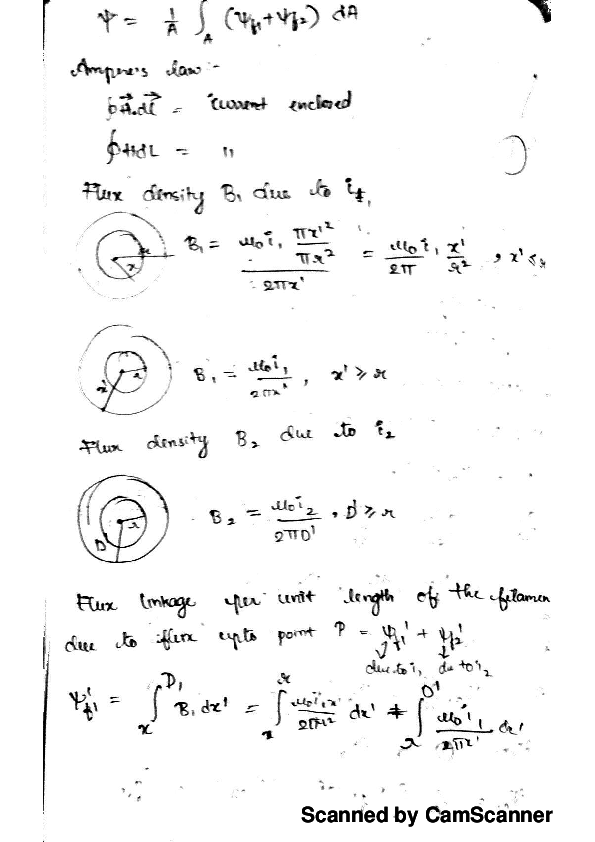 Ψ = 1/A ∫_A (Ψ_f1 + Ψ_f2) dA
Ampere's law :-
∮ A⃗.dl⃗ = current enclosed
∮ H dL = "
Flux density B₁ due to i₁,
B₁ = μ₀ i₁ (πx'²/πr²) / 2πx' = μ₀ i₁/2π x'/r² , x' ≤ r
x
r
B₁ = μ₀i₁/2πx' , x' ≥ r
x'
r
Flux density B₂ due to i₂
B₂ = μ₀i₂/2πD' , D' ≥ r
D'
r
Flux linkage per unit length of the filamen
due to flux upto point P = Ψ_f1' + Ψ_f2'
due to i₁ due to i₂
Ψ_f1' = ∫_x^D₁ B₁ dx' = ∫_x^r μ₀i₁x'/2πr² dx' + ∫_r^D' μ₀i₁/2πx' dx'
Scanned by CamScanner